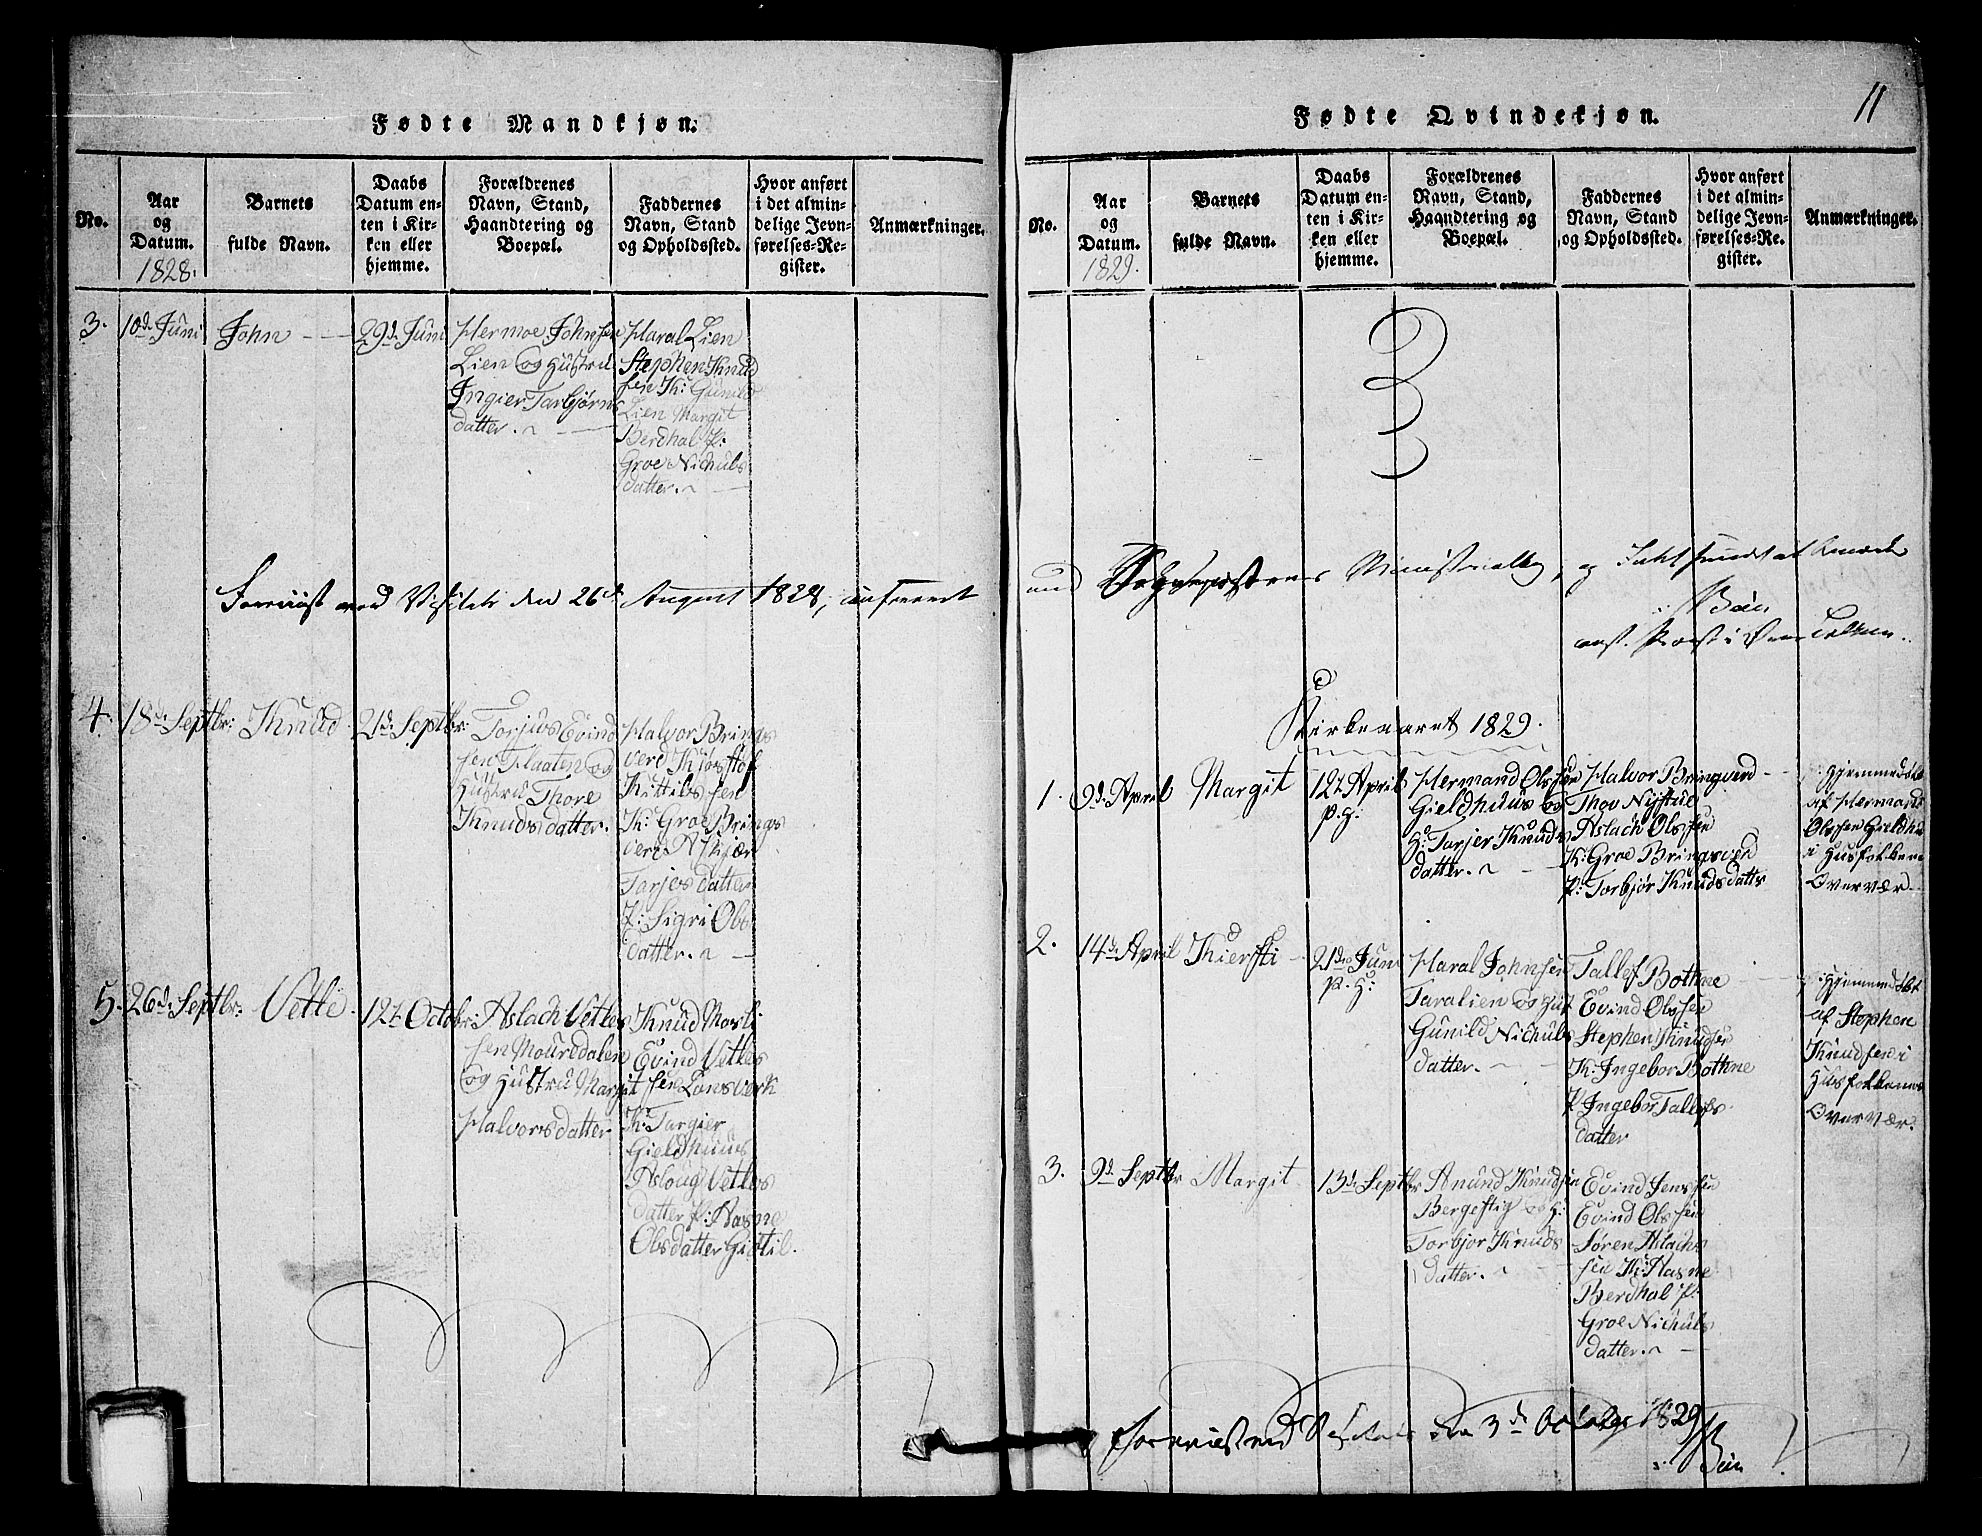 Fødte Mandkjøn.
No.
Aar
og
Datum.
1828.
Barnets
fulde Navn.
Daabs
Datum en-
ten i Kir-
ken eller
hjemme.
Forældrenes
Navn, Stand,
Haandtering og
Boepæl.
Faddernes
Navn, Stand
og Opholdssted.
Hvor anført
i det almin-
delige Jevn-
førelses-Re-
gister.
Anmærkninger.
3.
10d Juni
John
29d Juni
Hermoe Johnsen
Lien og Hustru
Ingier Tarbjørns
datter.
Haral Lien
Stephen Knud
sen K: Gunild
Lien Margit
Berdhal P:
Groe Nichuls
datter.
den 26d August 1828,
4.
18d Septbr:
Knud
21d Septbr:
Torjus Evind
sen Flaaten og
Hustru Thore
Knudsdatter.
Halvor Brings
verd Kjøsstøf
Kittilssen
K: Groe Brings
verd
Tarjesdatter
P: Sigri Ols
datter.
5.
26d Septbr:
Vetle
12t Octobr:
Aslach Vetles
sen Mouredalen
og Hustru Margit
Halvorsdatter
Knud Mosli
Evind Vetles
sen Lonsverk
K: Targier
Gieldhuus
Asloug Vetles
datter P: Aasne
Olsdatter
11
Fødte Qvindekjøn.
No.
Aar
og
Datum.
1829.
Barnets
fulde Navn.
Daabs
Datum en-
ten i Kir-
ken eller
hjemme.
Forældrenes
Navn, Stand,
Haandtering og
Boepæl.
Faddernes
Navn, Stand
og Opholdssted.
Hvor anført
i det almin-
delige Jevn-
førelses-Re-
gister.
Anmærkninger.
Ministerialbog, og
Kirkeaaret 1829.
1.
9d April
Margit
12t April
P. H:
Hermand Olssen
Gieldhuus og
H: Tarjer Knuds
datter.
Halvor Bringverd
Thov Nystul
Aslach Olssen
K: Groe Bringsverd
P: Torbjør Knudsdatter
Hjemmedøbt
af Hermand
Olssen Gieldhu
i Husfolkenes
Overvær.
2.
14d April
Kiersti
21de Juni
P. H:
Haral Johnsen
Taralien og Hust
Gunild Nichuls
datter.
Tallef Bothne
Evind Olssen
Stephen Knudsen
K: Ingebor Bothne
P: Ingebor Tallefs
datter
Hjemmedøbt
af Stephen
Knudsen i
Husfolkenes
Overvær.
3.
9d Septbr
Margit
13d Septbr
Anund Knudsen
Bergestig og H:
Torbjør Knuds
datter.
Evind Jenssen
Evind Olssen
Søren Aslachs
sen K: Aasne
Berdhal P:
Groe Nichuls
datter.
den 3d October 1829